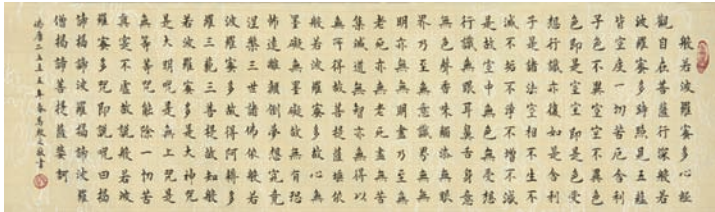 般若波羅蜜多心經
觀自在菩薩行深般若
波羅蜜多時照見五蘊
皆空度一切苦厄舍利
子色不異空空不異色
色即是空空即是色受
想行識亦復如是舍利
子是諸法空相不生不
滅不垢不淨不增不減
是故空中無色無受想
行識無眼耳鼻舌身意
無色聲香味觸法無眼
界乃至無意識界無無
明亦無無明盡乃至無
老死亦無老死盡無苦
集滅道無智亦無得以
無所得故菩提薩埵依
般若波羅蜜多故心無
罣礙無罣礙故無有恐
怖遠離顛倒夢想究竟
涅槃三世諸佛依般若
波羅蜜多故得阿耨多
羅三藐三菩提故知般
若波羅蜜多是大神咒
是大明咒是無上咒是
無等等咒能除一切苦
真實不虛故說般若波
羅蜜多咒即說咒曰揭
諦揭諦波羅揭諦波羅
僧揭諦菩提薩婆訶